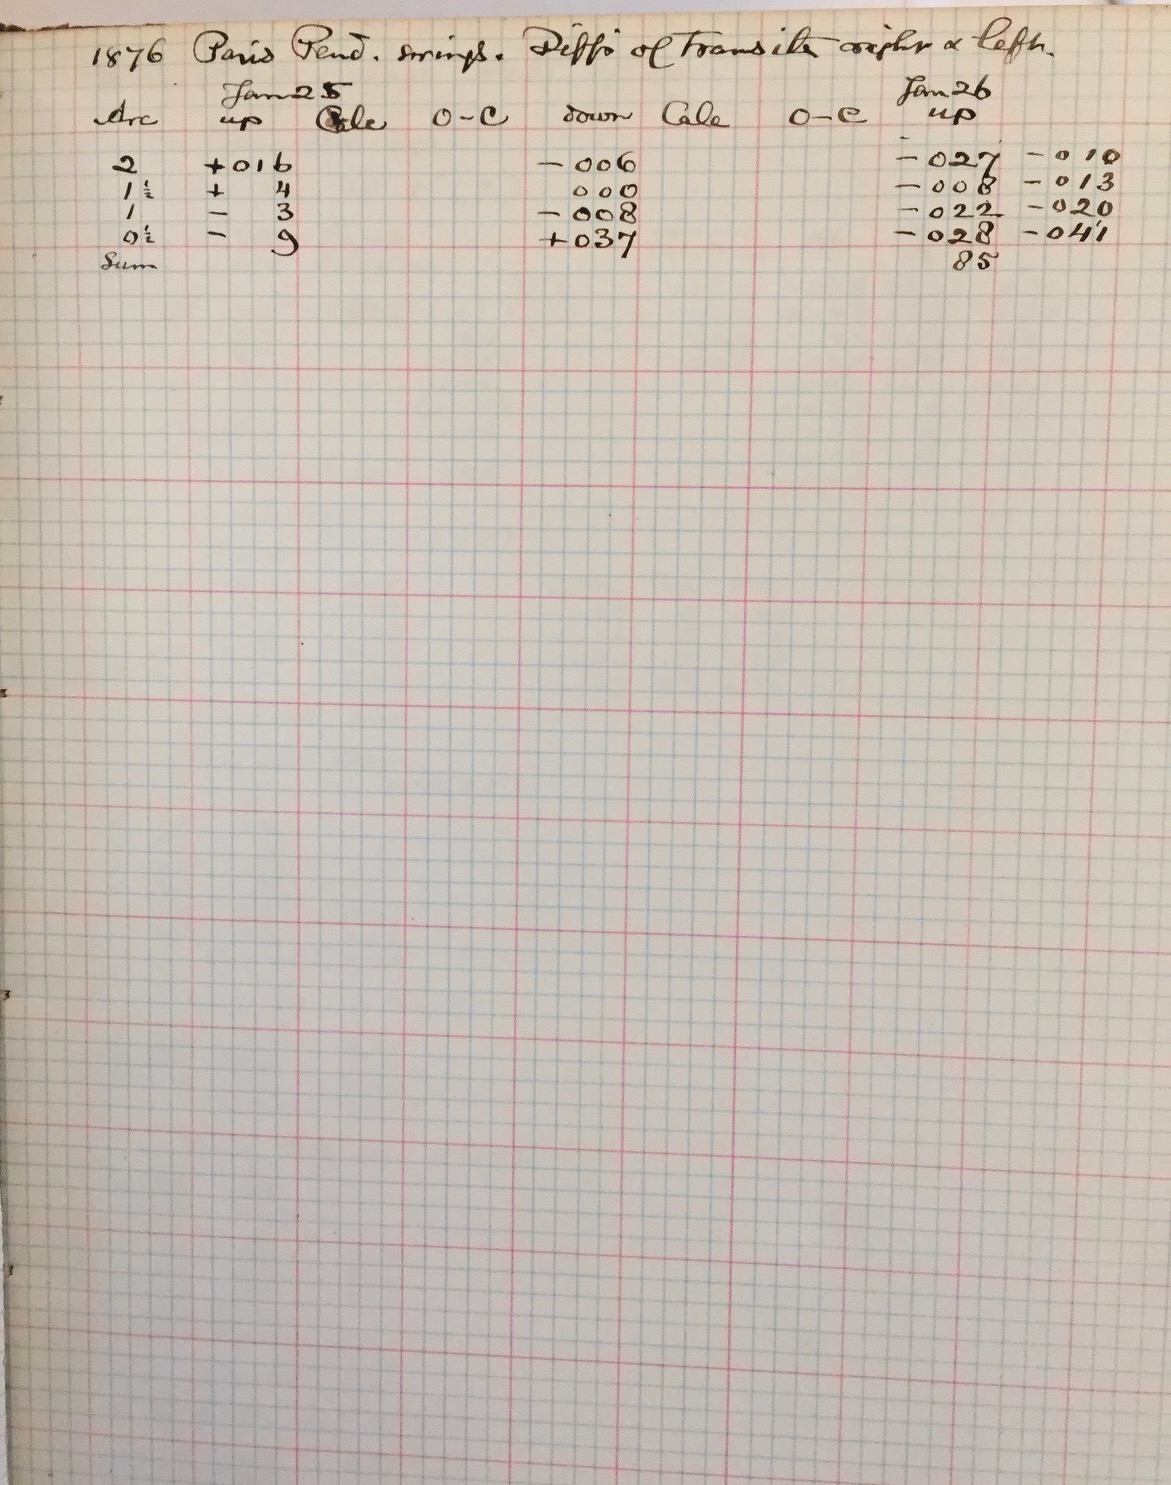 1876 Paris Pend. swings. Diffs of transits right & left.
Jan 25 Jan 26
Arc up Calc O-C down Calc O-C up
2 +016 -006 -027 -010
1½ + 4 000 -008 -013
1 - 3 -008 -022 -020
0½ - 9 +037 -028 -041
Sum 85